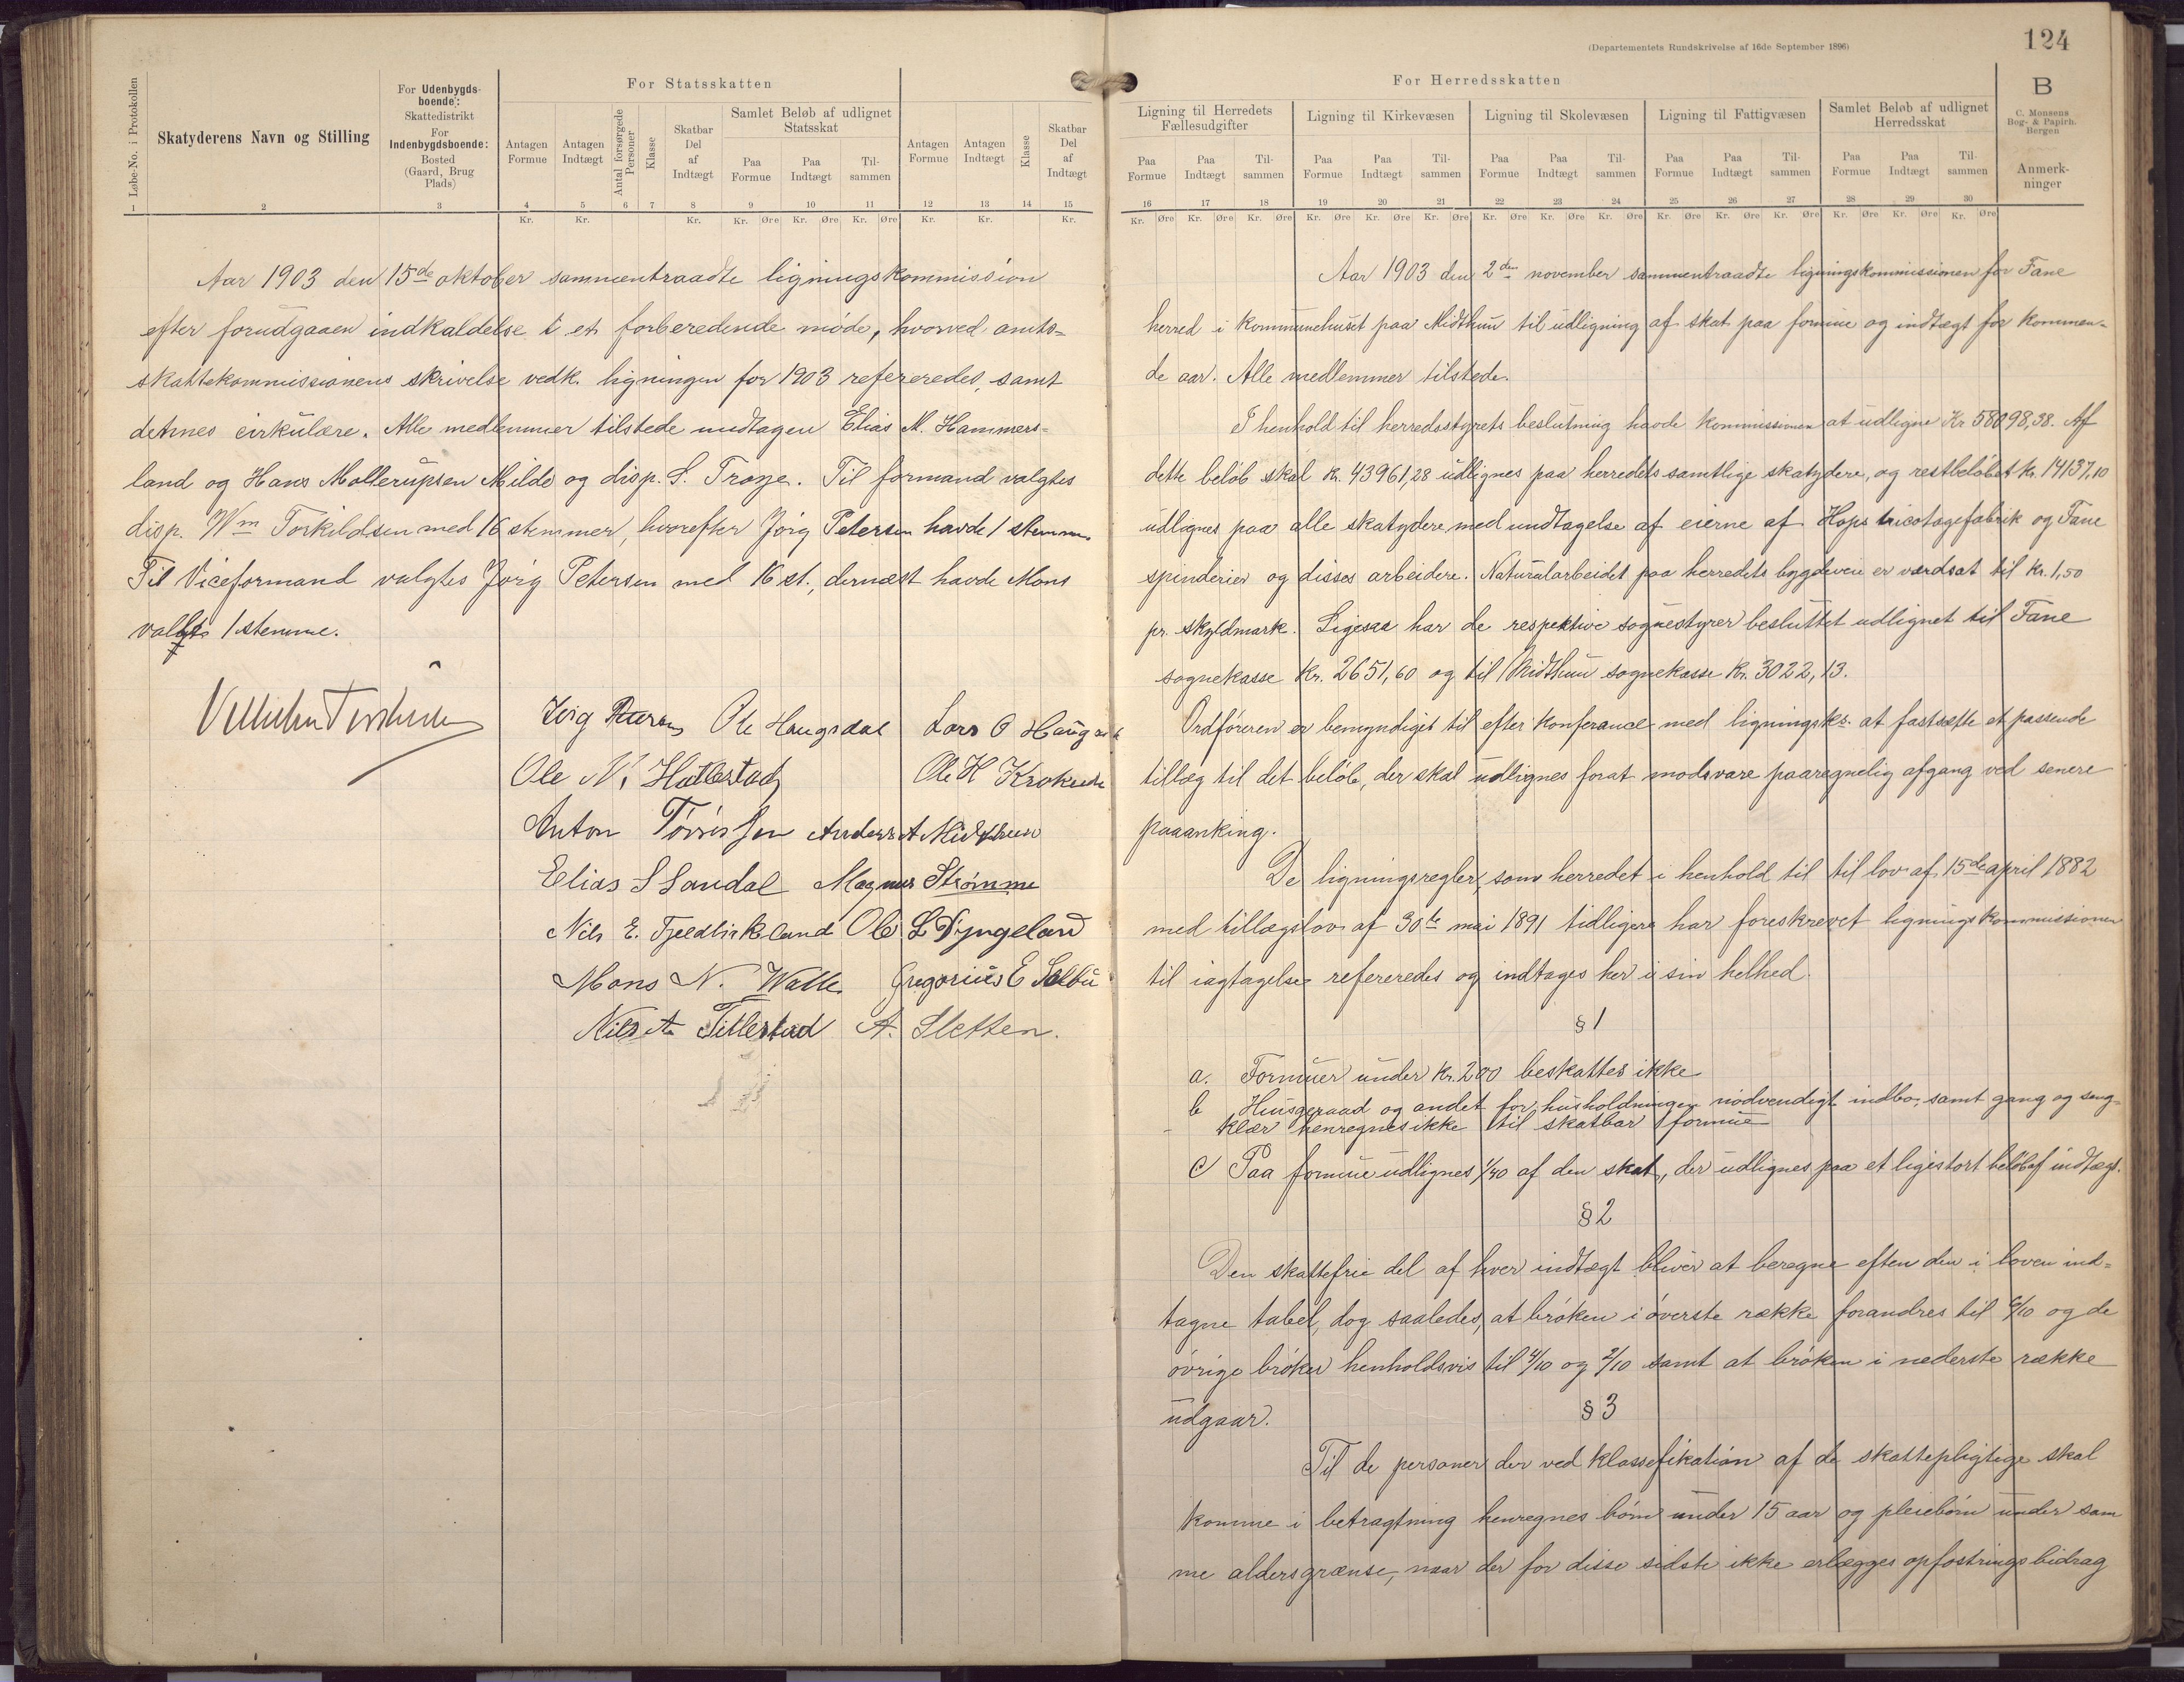 (Departementets Rundskrivelse af 16de September 1896)
124
Løbe-No. i Protokollen
Skatyderens Navn og Stilling
For Udenbygds-
boende:
Skattedistrikt
For
Indenbygdsboende:
Bosted
(Gaard, Brug
Plads)
For Statsskatten
Antagen
Formue
Antagen
Indtægt
Antal forsørgede
Personer
Klasse
Skatbar
Del
af
Indtægt
Samlet Beløb af udlignet
Statsskat
Paa
Formue
Paa
Indtægt
Til-
sammen
Antagen
Formue
Antagen
Indtægt
Klasse
Skatbar
Del
af
Indtægt
1 2 3 4 5 6 7 8 9 10 11 12 13 14 15
Kr. Kr. Kr. Kr. Øre Kr. Øre Kr. Øre Kr. Kr. Kr.
Aar 1903 den 15de oktober sammentraadte ligningskommission
efter forudgaaen indkaldelse t et forberedende møde, hvorved amts=
skattekommissionens skrivelse vedk. ligningen for 1903 refereredes, samt
dennes cirkulære. Alle medlemmer tilstede undtagen Elias M. Hammers=
land og Hans Mollerupsen Milde og disp. S. Troye. Til formand valgtes
disp. Wm Torkildsen med 16 stemmer, hvorefter Jörg Petersen havde 1 stemme
Til Viceformand valgtes Jörg Petersen med 16 st., dernæst havde Mons
valgts 1 stemme.
Jörg Petersen Ole Haugsdal Lars O Haug
Ole N. Hatlestad Ole H Krokeide
Anton Tørrissen Anders A Midthun
Elias S Sandal Magnus Strømme
Nils E. Fjeldbirkeland Ole L Dyngeland
Mons N. Walle Gregorius E Sælbu
Nils A Titlestad A. Sletten.
For Herredsskatten
B
C. Monsens
Bog- & Papirh.
Bergen
Ligning til Herredets
Fællesudgifter
Ligning til Kirkevæsen
Ligning til Skolevæsen
Ligning til Fattigvæsen
Samlet Beløb af udlignet
Herredsskat
Paa
Formue
Paa
Indtægt
Til-
sammen
Paa
Formue
Paa
Indtægt
Til-
sammen
Paa
Formue
Paa
Indtægt
Til-
sammen
Paa
Formue
Paa
Indtægt
Til-
sammen
Paa
Formue
Paa
Indtægt
Til-
sammen
Anmerk-
ninger
16 17 18 19 20 21 22 23 24 25 26 27 28 29 30
Kr. Øre Kr. Øre Kr. Øre Kr. Øre Kr. Øre Kr. Øre Kr. Øre Kr. Øre Kr. Øre Kr. Øre Kr. Øre Kr. Øre Kr. Øre Kr. Øre Kr. Øre
Aar 1903 den 2den november sammentraadte ligningskommissionen for Fane
herred i kommunehuset paa Midthun til udligning af skat paa formue og indtægt for kommen=
de aar. Alle medlemmer tilstede.
I henhold til herredsstyrets beslutning havde kommissionen at udligne Kr 58098,38. Af
dette beløb skal kr. 43961,28 udlignes paa herredets samtlige skatydere, og restbeløbet kr. 14137,10
udlignes paa alle skatydere med undtagelse af eierne af Hops tricotagefabrik og Fane
spinderier og disses arbeidere. Naturalarbeidet paa herredets bygdeveie er værdsat til kr. 1,50
pr. skyldmark. Ligesaa har de respektive sognestyrer besluttet udlignet til Fane
sognekasse kr. 2651,60 og til Midthun sognekasse kr. 3022,13.
Ordføreren er bemyndiget til efter konferance med ligningsks. at fastsætte et passende
tillæg til det beløb, der skal udlignes forat modsvare paaregnelig afgang ved senere
paaanking.
De ligningsregler, som herredet i henhold til til lov af 15de april 1882
med tillægslov af 30te mai 1891 tidligere har foreskrevet ligningskommissionen
til iagtagelse refereredes og indtages her i sin helhed.
§ 1
a. Formuer under kr. 200 beskattes ikke
b Husgeraad og andet for husholdningen nødvendigt indbo, samt gang og seng=
klær henregnes ikke til skatbar formue
c Paa formue udlignes 1/40 af den skat, der udlignes paa et ligestort beløb af indtægt.
§ 2
Den skattefrie del af hver indtægt bliver at beregne efter den i loven ind=
tagne tabel, dog saaledes, at brøken i øverste række forandres til 6/10 og de
øvrige brøker henholdsvis til 4/10 og 2/10 samt at brøken i nederste række
udgaar.
§ 3
Til de personer der ved klassefikation af de skattepligtige skal
komme i betragtning henregnes børn under 15 aar og pleiebørn under sam
me aldersgrænse, naar der for disse sidste ikke erlægges opfostringsbidrag